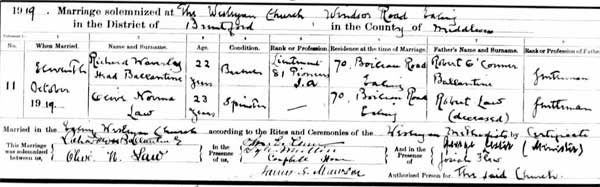 1919. Marriage solemnized at The Wesleyan Church Windsor Road Ealing
in the District of Brentford in the County of Middlesex
Columns:— 1 2 3 4 5 6 7 8
No. When Married. Name and Surname. Age. Condition. Rank or Profession. Residence at the time of Marriage. Father's Name and Surname. Rank or Profession of Father
11 Eleventh October 1919. Richard Head Ballantine 22 years Bachelor Lieutenant 81 Pioneers I.A. 70, Boileau Road Ealing Robert O'Connor Ballantine Gentleman
Olive Norma Law 23 years Spinster — 70, Boileau Road Ealing Robert Law (deceased) Gentleman
Married in the Ealing Wesleyan Church according to the Rites and Ceremonies of the Wesleyan Methodists by Certificate
This Marriage was solemnized between us,
Olive N. Law
In the Presence of us,
Campbell
James S.
And in the Presence of
(Minister)
Josiah
Authorised Person for the said Church.